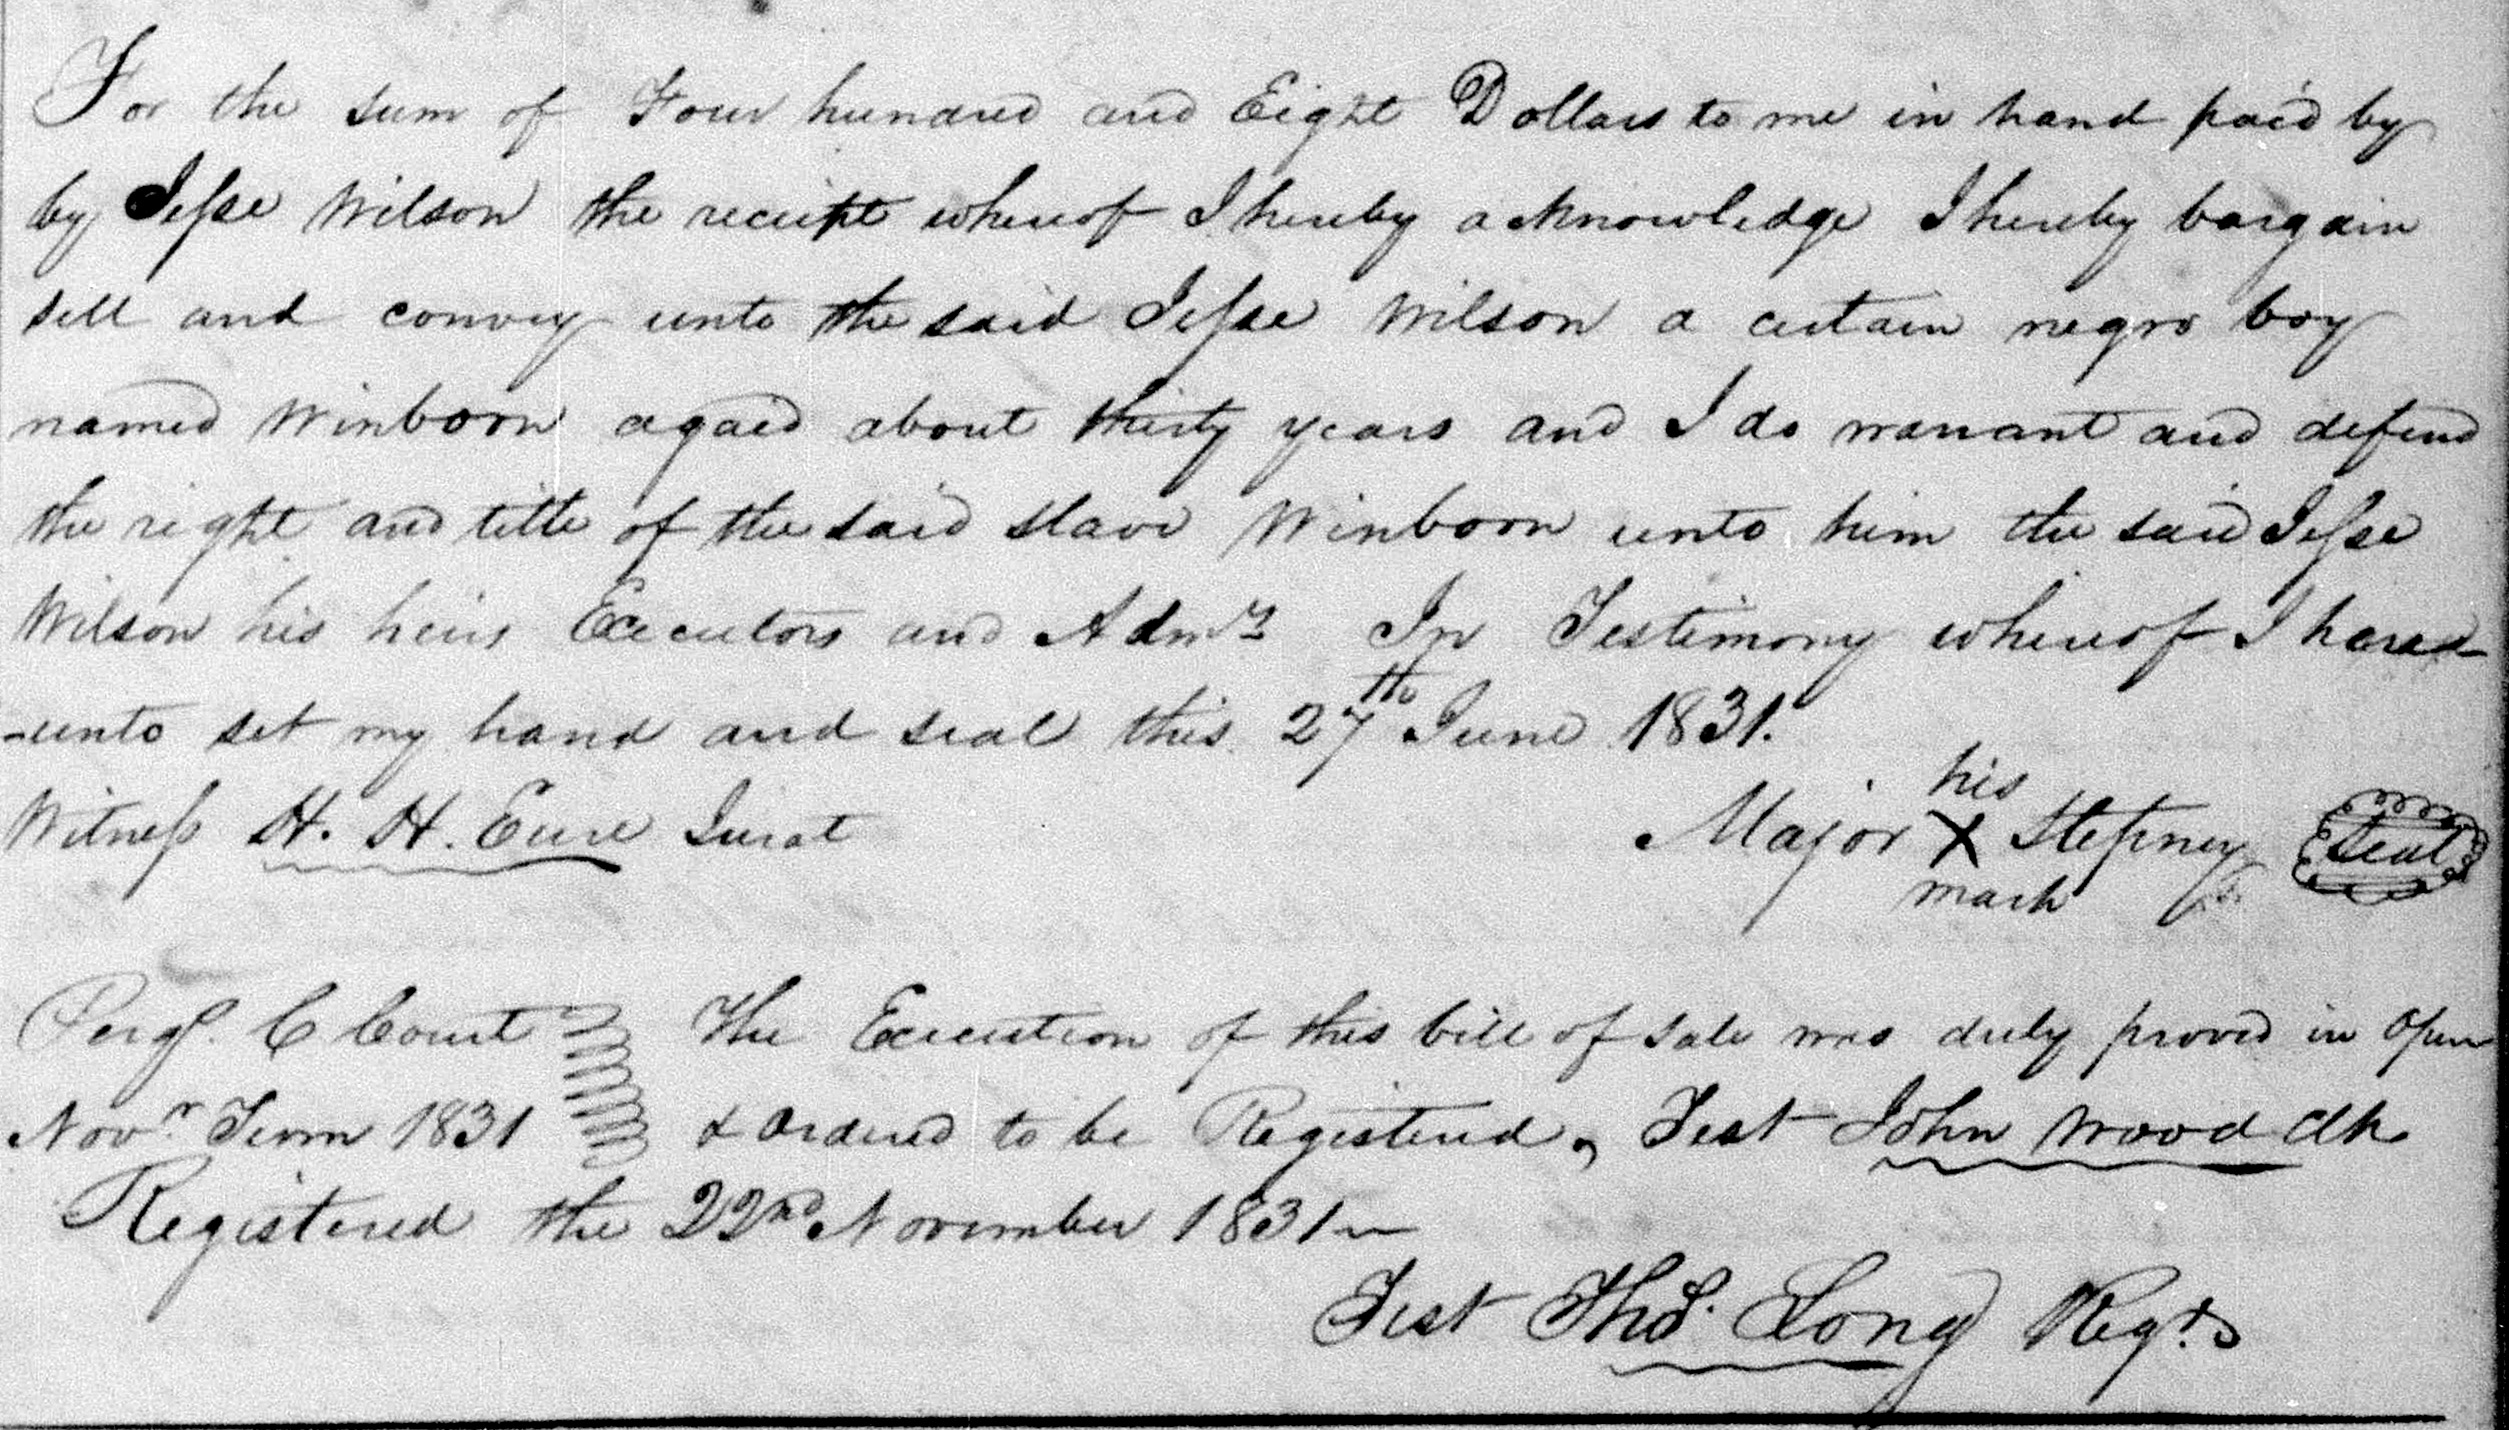 For the sum of Four hundred and Eight Dollars to me in hand paid by
by Jesse Wilson the receipt whereof I hereby acknowledge I hereby bargain
sell and convey unto the said Jesse Wilson a certain negro boy
named Winboon agaed about thirty years and I do warrant and defend
the right and title of the said slave Winboon unto him the said Jesse
Wilson his heirs Executors and Admrs In Testimony whereof I have
-unto set my hand and seal this 27th June 1831.
his
Witness H. H. Eure Jurat Major X Stepney Seal
mark
Perqs. C Court The Execution of this bill of sale was duly proved in open
Novr. Term 1831 & ordered to be Registered, Test John Wood Clk
Registered the 22nd November 1831
Test Thos. Long Regr.